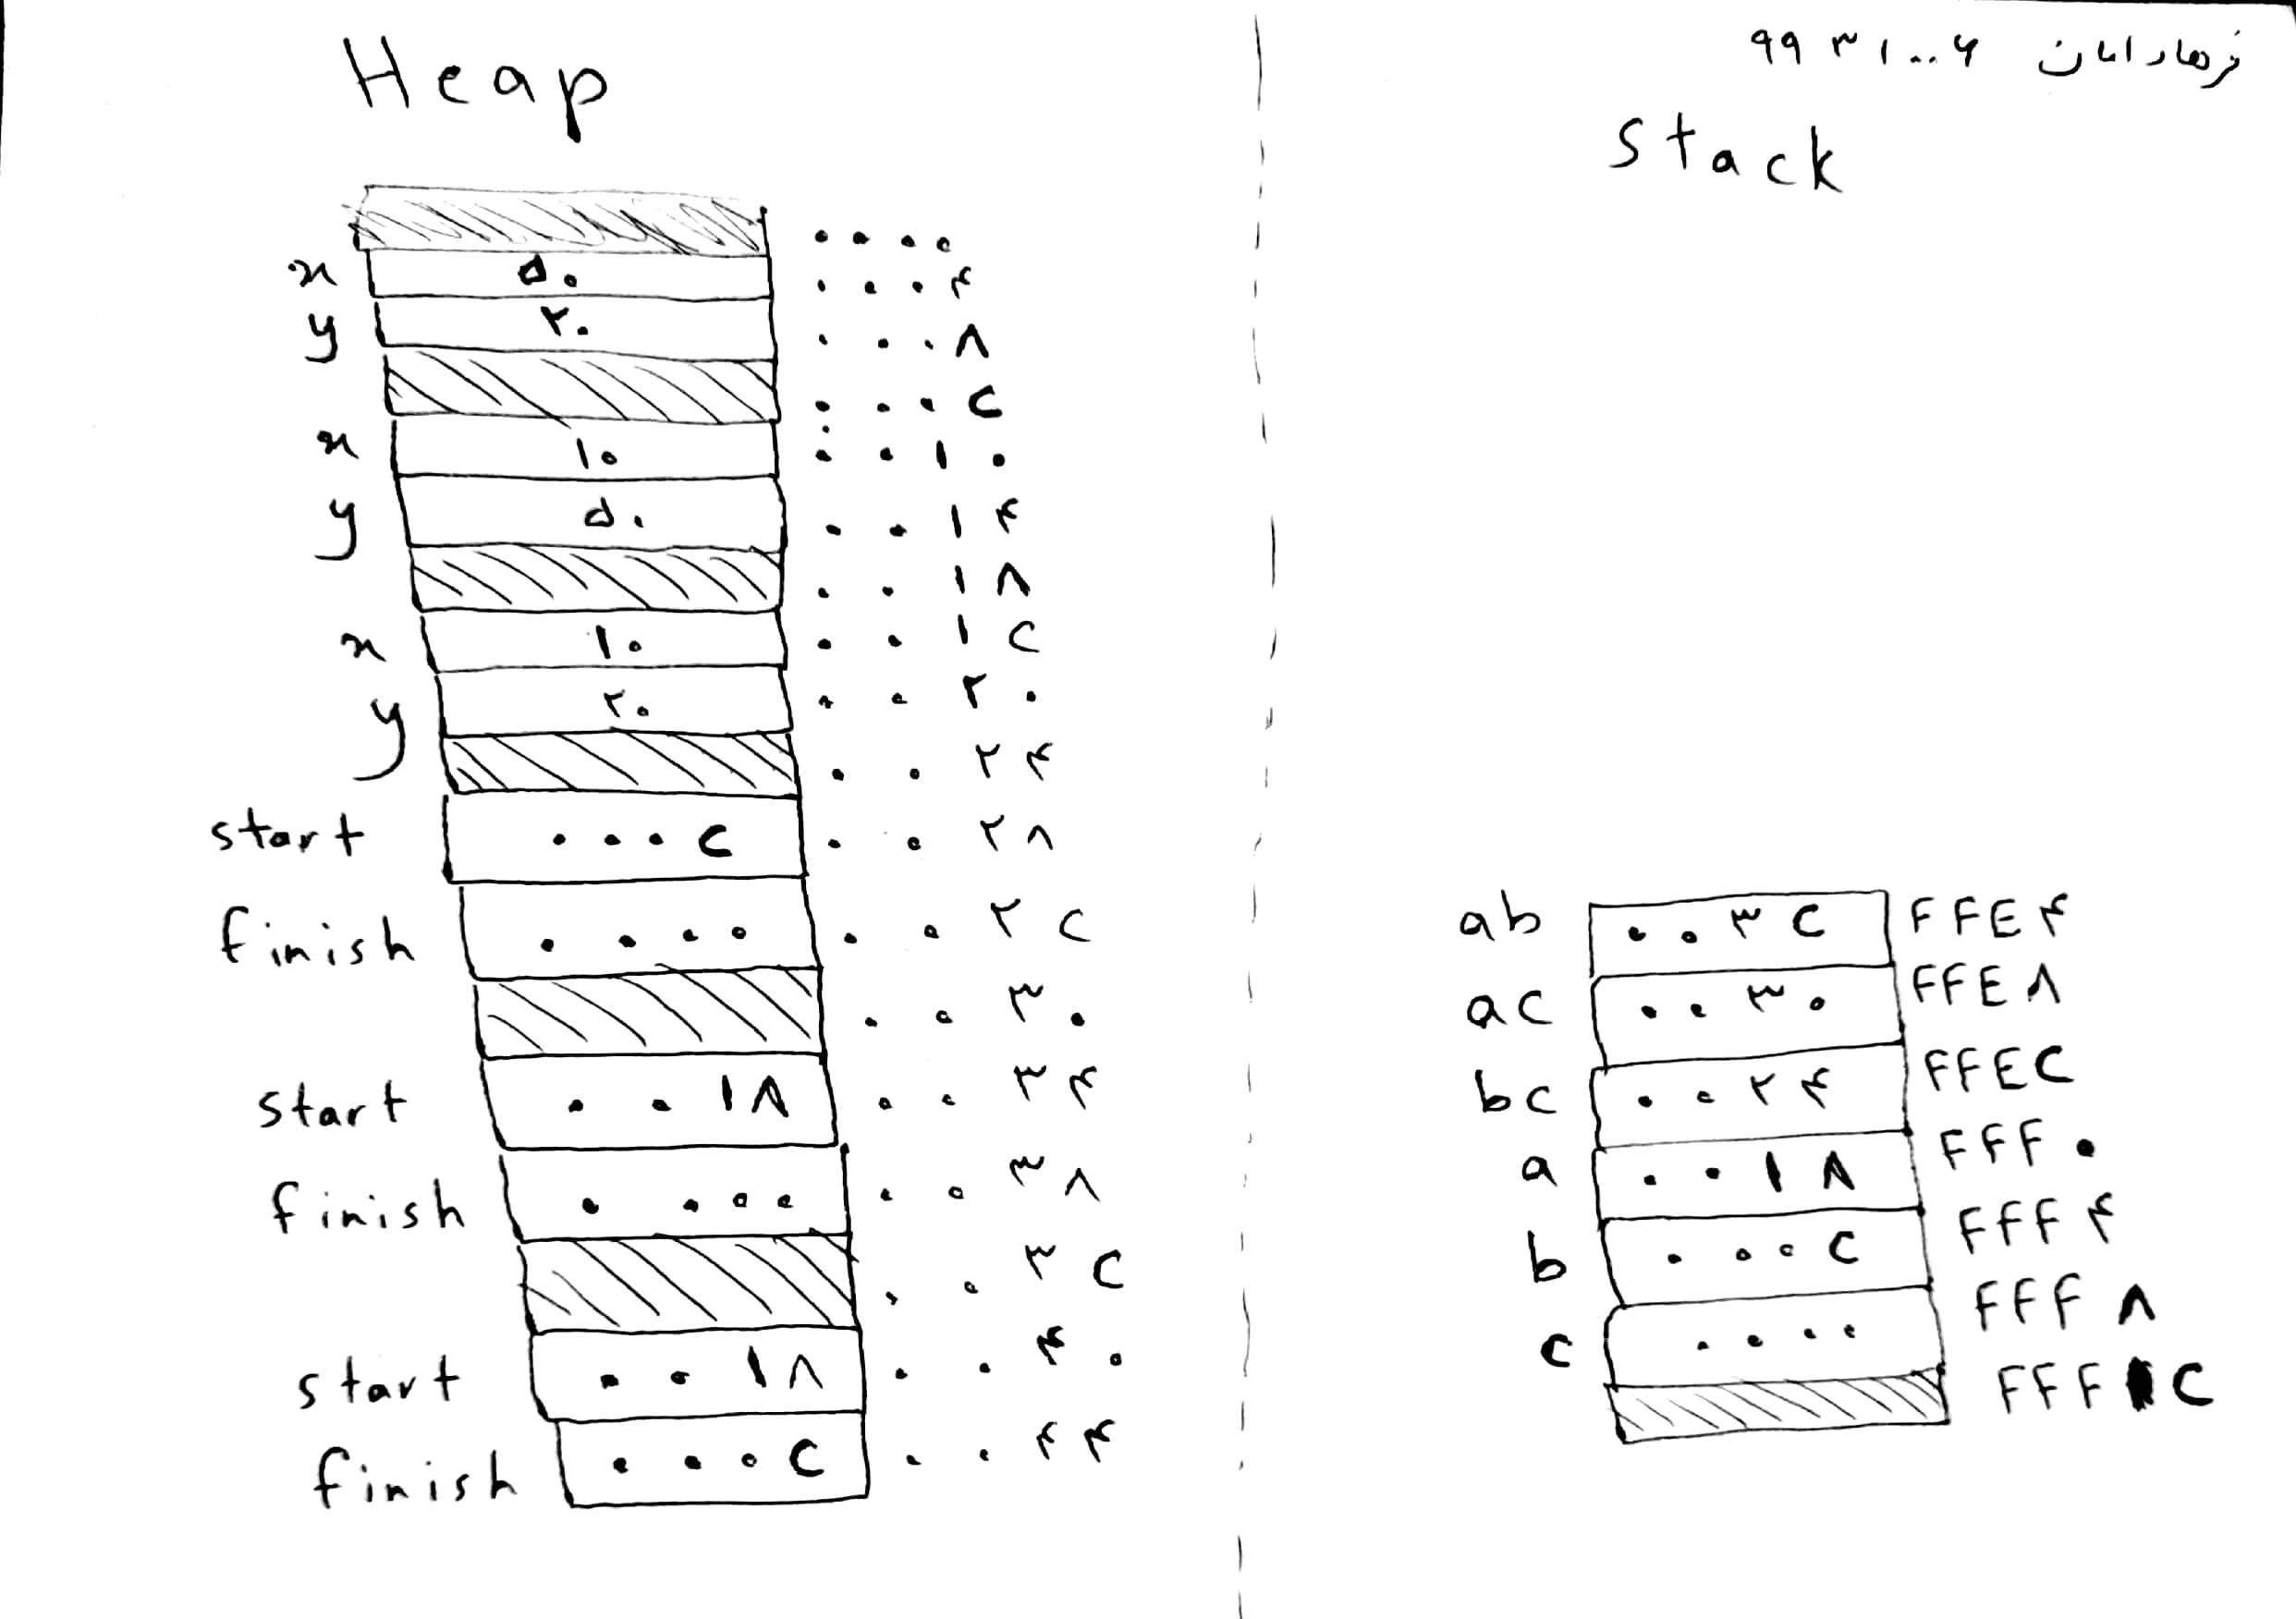 فرهاد امان ۹۹۳۱۰۰۶
Heap
۰۰۰۰
x ۵۰ ۰۰۰۴
y ۲۰ ۰۰۰۸
۰۰۰C
x ۱۰ ۰۰۱۰
y ۵۰ ۰۰۱۴
۰۰۱۸
x ۱۰ ۰۰۱C
y ۲۰ ۰۰۲۰
۰۰۲۴
start ۰۰۰C ۰۰۲۸
finish ۰۰۰۰ ۰۰۲C
۰۰۳۰
start ۰۰۱۸ ۰۰۳۴
finish ۰۰۰۰ ۰۰۳۸
۰۰۳C
start ۰۰۱۸ ۰۰۴۰
finish ۰۰۰C ۰۰۴۴
Stack
ab ۰۰۳C FFE۴
ac ۰۰۳۰ FFE۸
bc ۰۰۲۴ FFEC
a ۰۰۱۸ FFF۰
b ۰۰۰C FFF۴
c ۰۰۰۰ FFF۸
FFFC